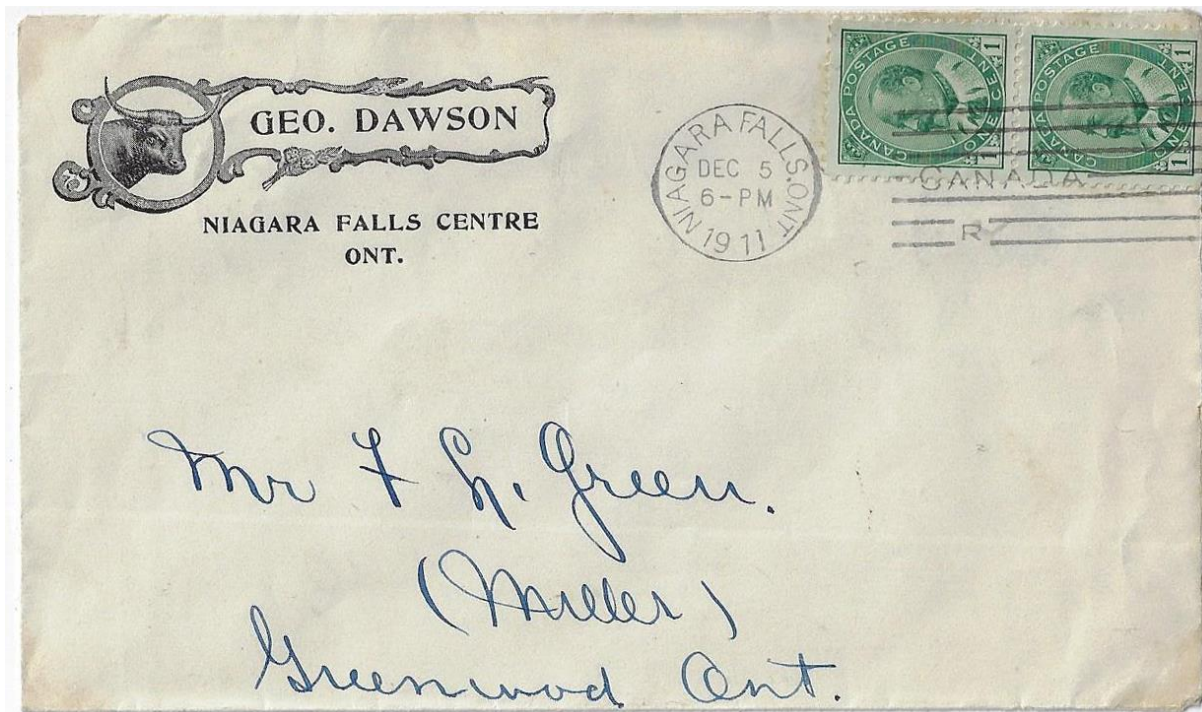 GEO. DAWSON
NIAGARA FALLS CENTRE
ONT.
NIAGARA FALLS. ONT
DEC 5
6-PM
1911
CANADA POSTAGE
ONE CENT
1 1
CANADA POSTAGE
ONE CENT
1 1
CANADA
R
Mr F L. Green.
(Miller)
Greenwood Ont.